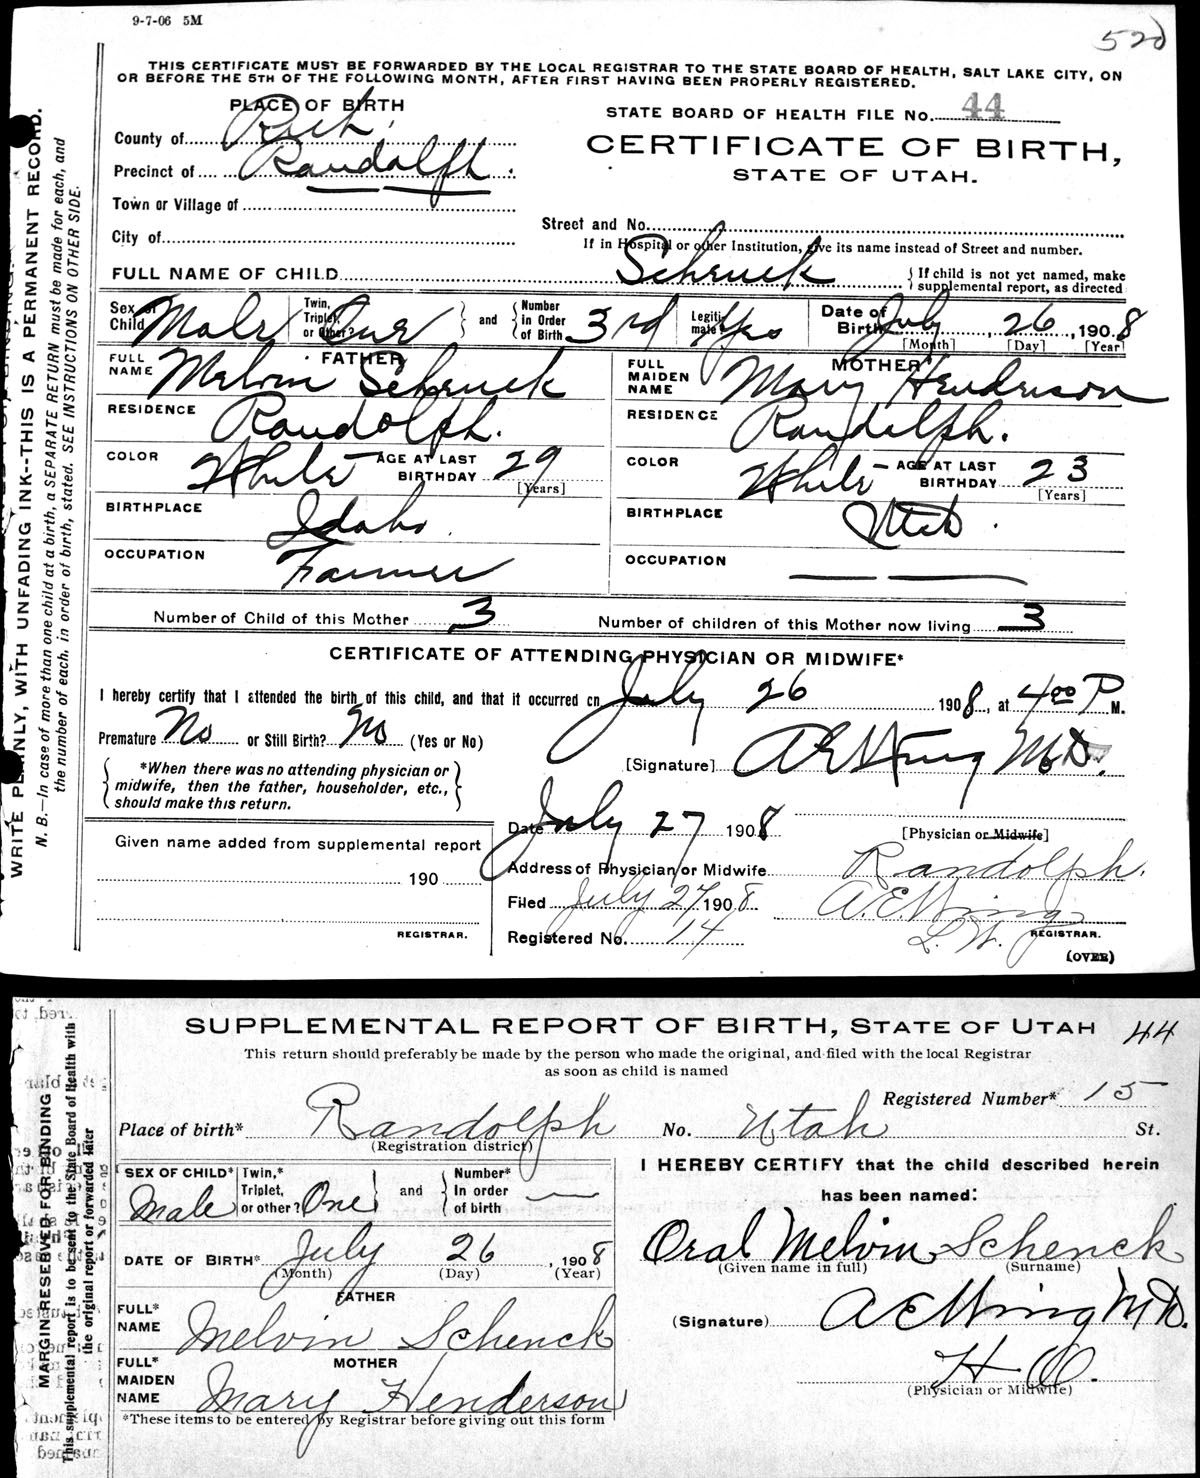 9-7-06 5M
520
THIS CERTIFICATE MUST BE FORWARDED BY THE LOCAL REGISTRAR TO THE STATE BOARD OF HEALTH, SALT LAKE CITY, ON
OR BEFORE THE 5TH OF THE FOLLOWING MONTH, AFTER FIRST HAVING BEEN PROPERLY REGISTERED.
PLACE OF BIRTH
County of Rich.
Precinct of Randolph.
Town or Village of
City of
STATE BOARD OF HEALTH FILE No. 44
CERTIFICATE OF BIRTH,
STATE OF UTAH.
Street and No.
If in Hospital or other Institution, give its name instead of Street and number.
FULL NAME OF CHILD Schenck
If child is not yet named, make
supplemental report, as directed
Sex of Child Male Twin, Triplet, or Other? One and Number in Order of Birth 3rd Legitimate Yes Date of Birth July 26, 1908
[Month] [Day] [Year]
FATHER
FULL NAME Melvin Schenck
RESIDENCE Randolph.
COLOR White AGE AT LAST BIRTHDAY 29
[Years]
BIRTHPLACE Idaho.
OCCUPATION Farmer
MOTHER
FULL MAIDEN NAME Mary Henderson
RESIDENCE Randolph.
COLOR White AGE AT LAST BIRTHDAY 23
[Years]
BIRTHPLACE Utah.
OCCUPATION
Number of Child of this Mother 3 Number of children of this Mother now living 3
CERTIFICATE OF ATTENDING PHYSICIAN OR MIDWIFE*
I hereby certify that I attended the birth of this child, and that it occurred on July 26 1908, at 4:00 P M.
Premature No or Still Birth? No (Yes or No)
[Signature] A E Wing M.D.
*When there was no attending physician or
midwife, then the father, householder, etc.,
should make this return.
Date July 27 1908
[Physician or Midwife]
Given name added from supplemental report
190
REGISTRAR.
Address of Physician or Midwife Randolph.
Filed July 27 1908 A. E. Wing
Registered No. 14
REGISTRAR.
(OVER)
WRITE PLAINLY, WITH UNFADING INK--THIS IS A PERMANENT RECORD.
N. B.—In case of more than one child at a birth, a SEPARATE RETURN must be made for each, and
the number of each, in order of birth, stated. SEE INSTRUCTIONS ON OTHER SIDE.
SUPPLEMENTAL REPORT OF BIRTH, STATE OF UTAH 44
This return should preferably be made by the person who made the original, and filed with the local Registrar
as soon as child is named
Registered Number* 15
Place of birth* Randolph No. Utah St.
(Registration district)
SEX OF CHILD* Male Twin,* Triplet, or other? One and Number* In order of birth
DATE OF BIRTH* July 26, 1908
(Month) (Day) (Year)
FATHER
FULL* NAME Melvin Schenck
MOTHER
FULL* MAIDEN NAME Mary Henderson
*These items to be entered by Registrar before giving out this form
I HEREBY CERTIFY that the child described herein
has been named:
Oral Melvin Schenck
(Given name in full) (Surname)
(Signature) A E Wing M.D.
H O.
(Physician or Midwife)
MARGIN RESERVED FOR BINDING
This supplemental report is to be sent to the State Board of Health with
the original report or forwarded later